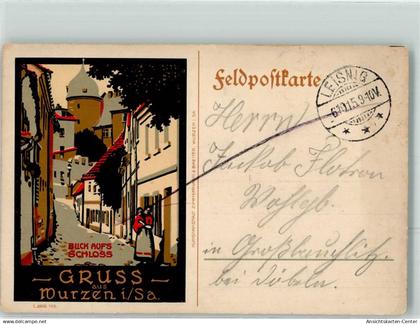 BLICK AUFS
SCHLOSS
GRUSS
aus
Wurzen i/Sa.
Feldpostkarte
LEISNIG
6.10.15.9-10V.
Herrn
Jakob
Wohlgb.
in Großbauchlitz.
bei Döbeln.
www.ansichtskarten-center.de
Ansichtskarten-Center